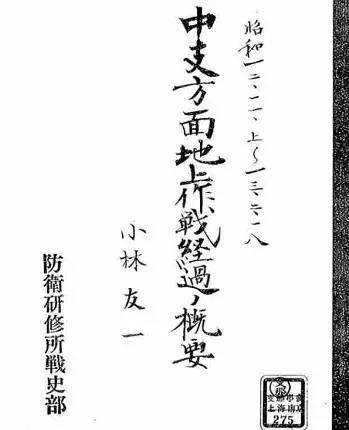 昭和一二、一一、上〜一三、二、一八
中支方面地上作戦経過ノ概要
小林友一
防衛研修所戦史部
275